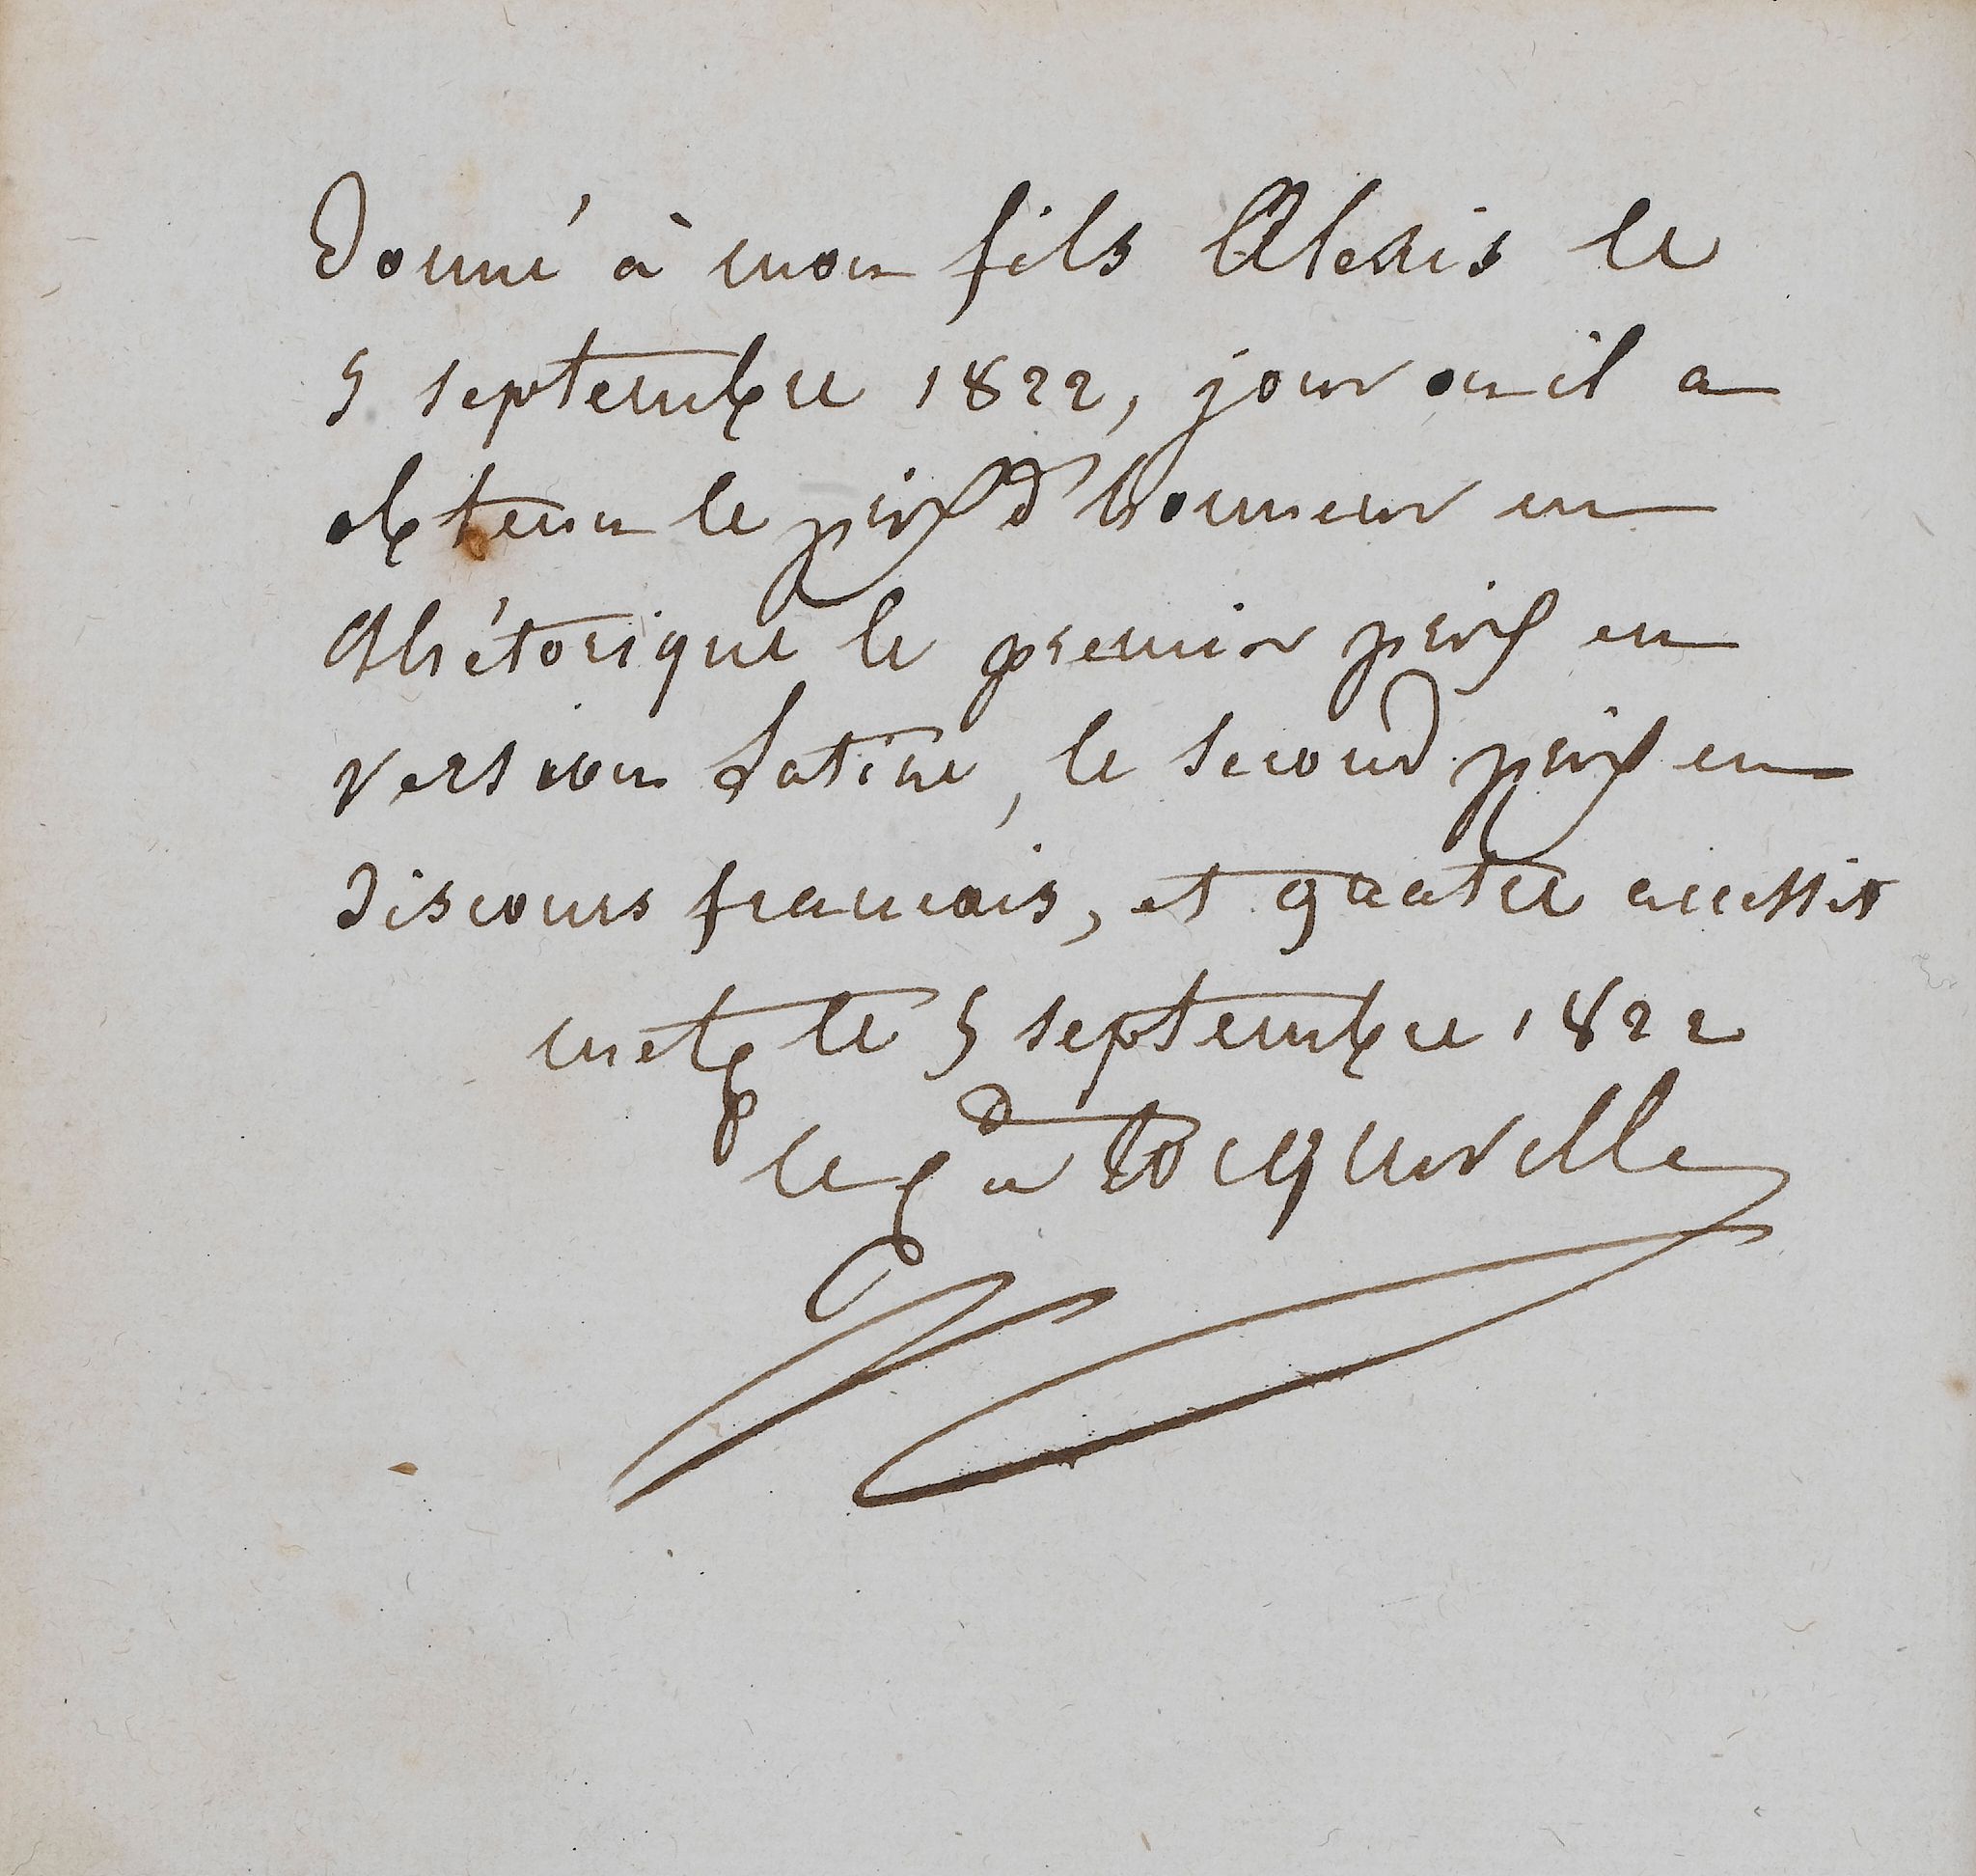 Donné à mon fils Alexis le
5 septembre 1822, jour ou il a
obtenu le prix d'honneur en
Rhétorique le premier prix en
version Latine, le second prix en
discours francais, et quatre accessit
metz le 5 septembre 1822
le Cte de Tocqueville